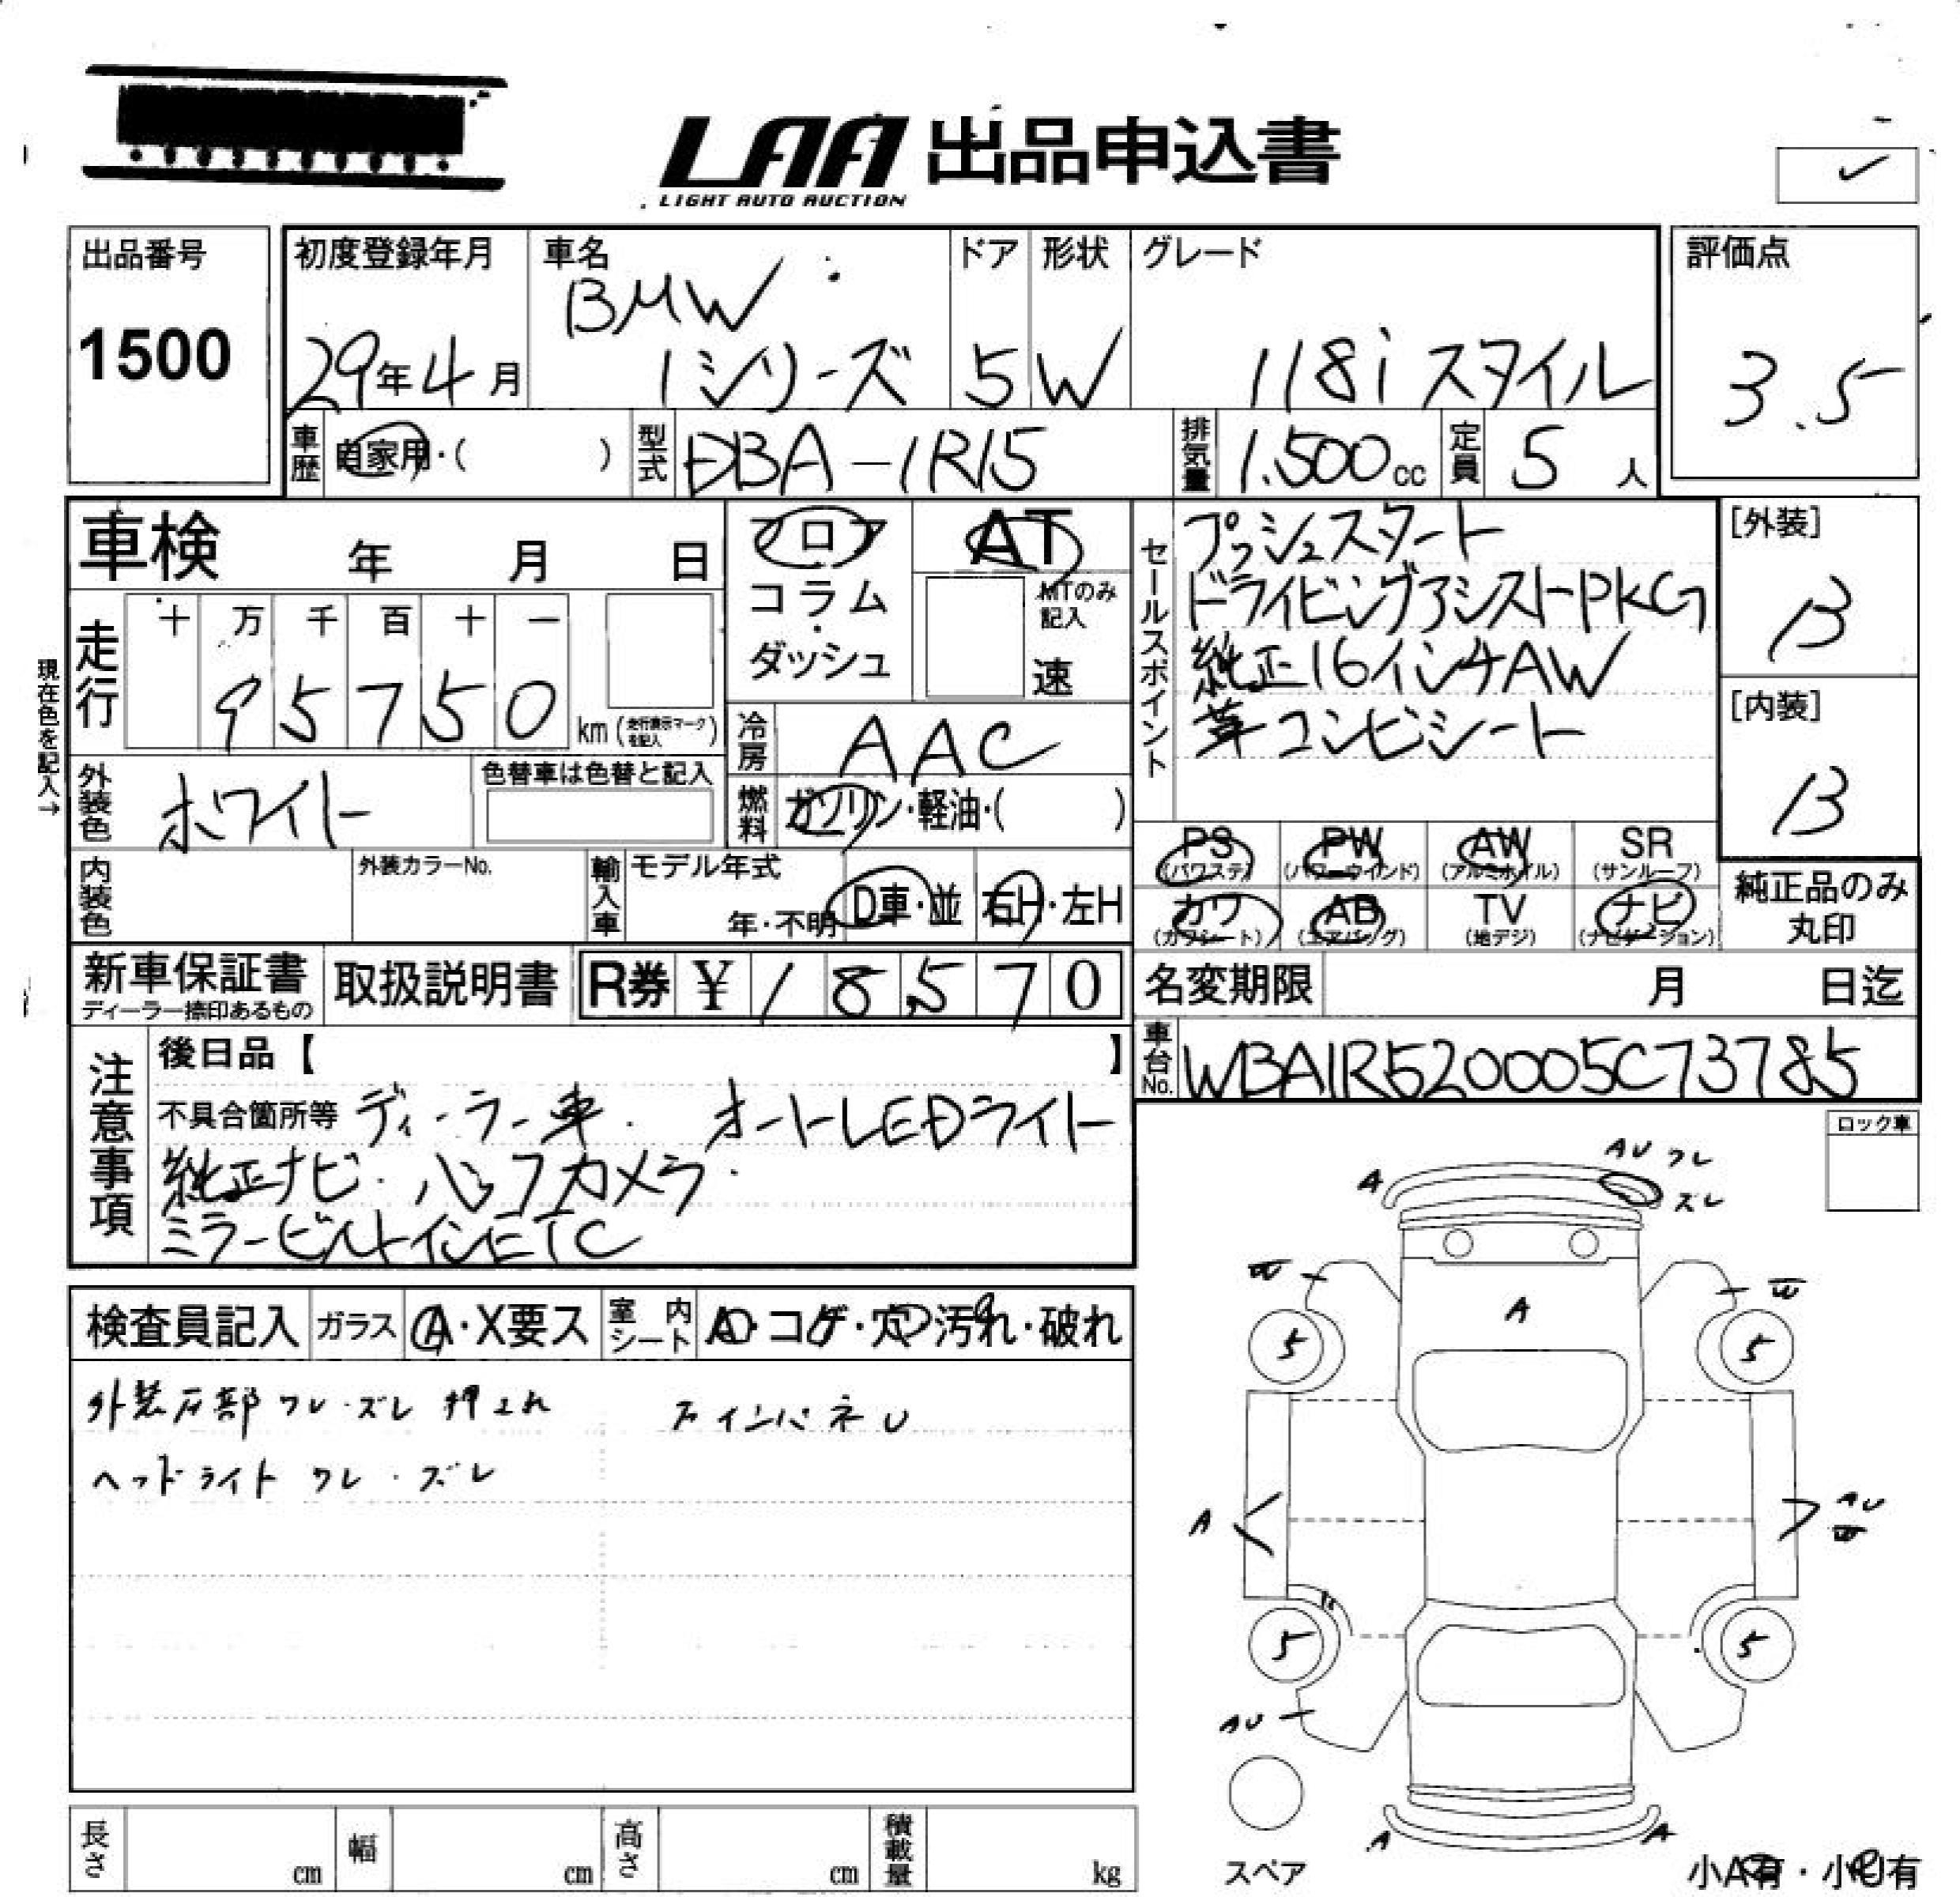 LAA 出品申込書
LIGHT AUTO AUCTION
出品番号
1500
初度登録年月
29年4月
車名
BMW
1シリーズ
ドア
5
形状
W
グレード
118i スタイル
評価点
3.5
車歴 自家用・( )
型式 DBA-1R15
排気量 1.500cc
定員 5人
車検 年 月 日
フロア
コラム
・
ダッシュ
AT
MTのみ記入
速
セールスポイント
プッシュスタート
ドライビングアシストPKG
純正16インチAW
革コンビシート
[外装]
B
[内装]
B
現在色を記入→
走行
十 万 千 百 十 一
9 5 7 5 0 km (走行表示マークを記入)
冷房 AAC
外装色 ホワイト
色替車は色替と記入
燃料 ガソリン・軽油・( )
PS (パワステ)
PW (パワーウインド)
AW (アルミホイル)
SR (サンルーフ)
カワ (カワシート)
AB (エアバッグ)
TV (地デジ)
ナビ (ナビゲーション)
純正品のみ
丸印
内装色
外装カラーNo.
輸入車
モデル年式
年・不明
D車・並
右H・左H
新車保証書
ディーラー捺印あるもの
取扱説明書
R券 ¥ 18570
名変期限 月 日迄
車台No. WBA1R520005C73785
注意事項
後日品【 】
不具合箇所等 ディーラー車. オートLEDライト
純正ナビ. バックカメラ.
ミラービルトインETC
ロック車
検査員記入
ガラス A・X要ス
室内シート A・コゲ・穴・汚れ・破れ
ワレ・ズレ インパネ U
ヘッドライト ワレ・ズレ
A
AU ワレ
ズレ
W
W
A
5
5
A
AU
W
5
5
AU
A
A
スペア
小A有・小U有
長さ cm
幅 cm
高さ cm
積載量 kg